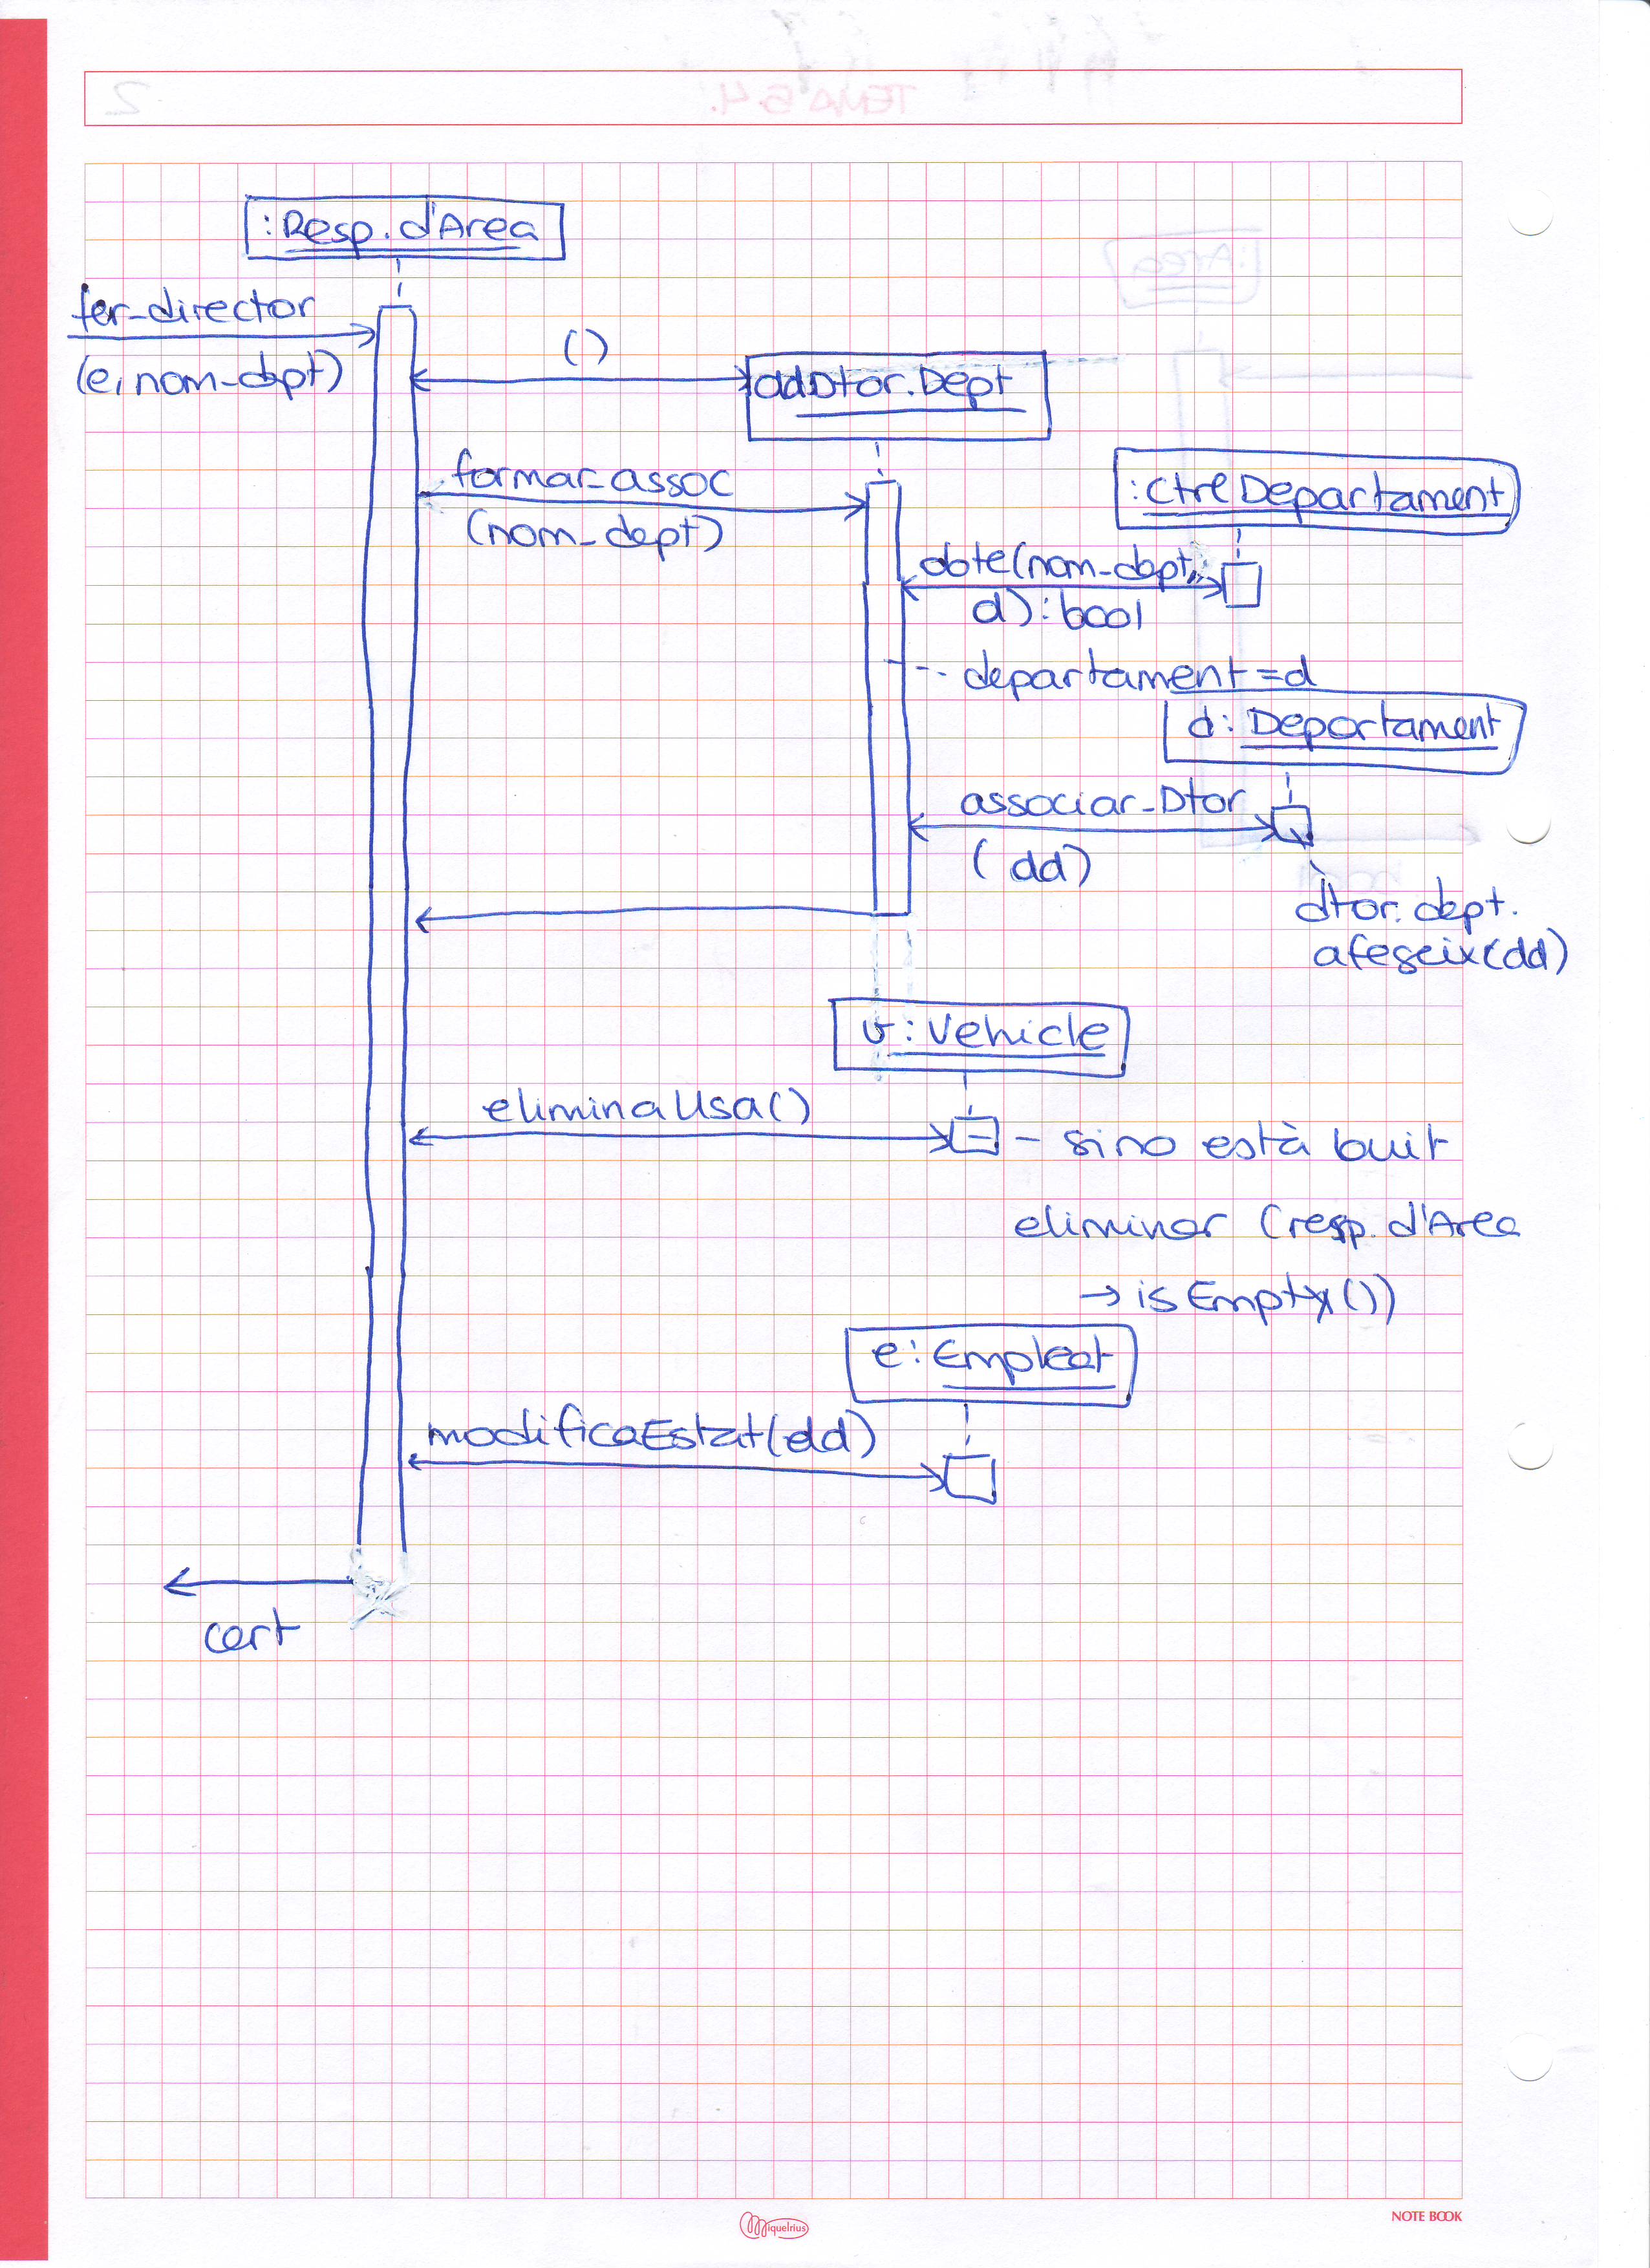 :Resp. d'Area
fer_director
(e, nom_dpt)
()
dd:Dtor.Dept
formar_assoc
(nom_dept)
:CtrlDepartament
dote(nom_dept,
d):bool
departament=d
d: Departament
associar_Dtor
(dd)
dtor.dept.
afegeix(dd)
v:Vehicle
eliminaUsa()
sino està buit
eliminar (resp. d'Area
→ isEmpty())
e: Empleat
modificaEstat(dd)
cert
Miquelrius
NOTE BOOK